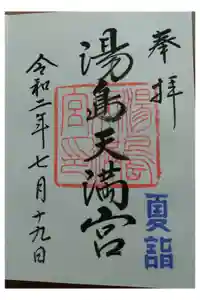 奉拝
湯島天満宮
令和二年七月十九日
夏詣